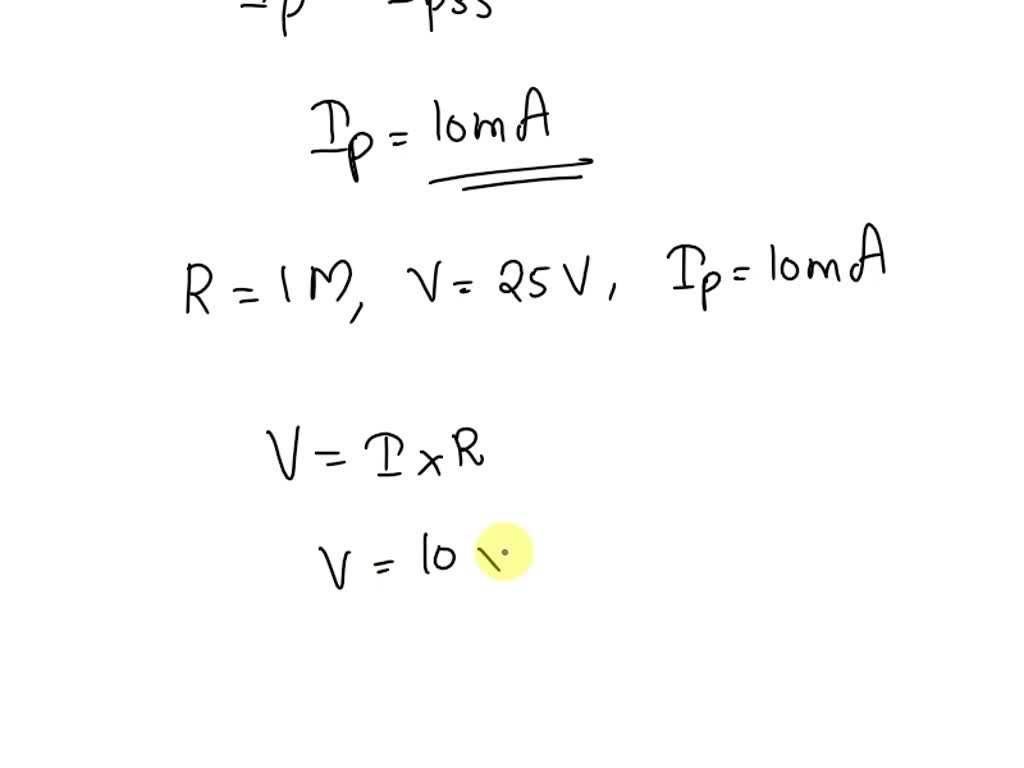 I_p = 10mA
R = 1M, V = 25V, I_p = 10mA
V = I × R
V = 10